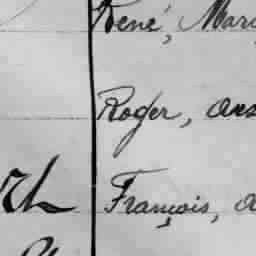 René, Mari
Roger, ans
François, a